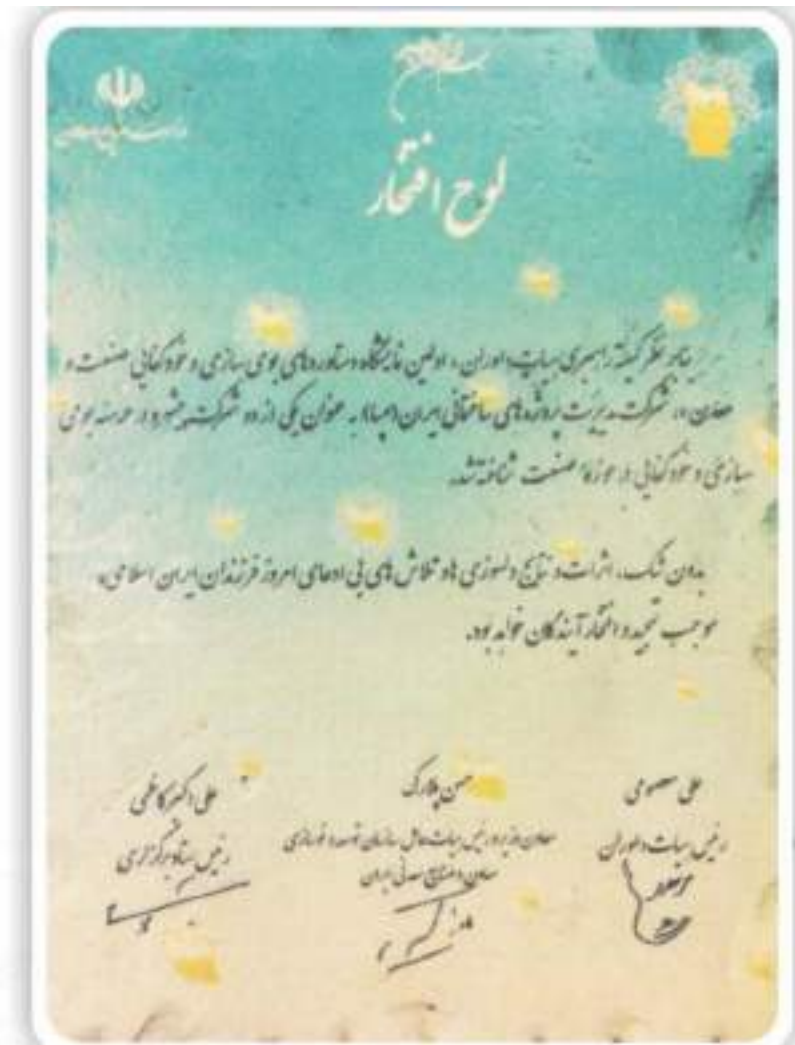 لوح افتخار
بنابر نظر کمیته راهبری هیات داوران، اولین نمایشگاه دستاوردهای بومی سازی و خودکفایی صنعت و
معدن، شرکت مدیریت پروژه های ساختمانی ایران (مپسا) به عنوان یکی از ده شرکت در عرصه بومی
سازی و خودکفایی در حوزه صنعت شناخته شد.
بدون شک، اثرات و نتایج دلسوزی ها و تلاش های بی ادعای امروز فرزندان ایران اسلامی،
موجب تمجید و افتخار آیندگان خواهد بود.
علی معصومی
رئیس هیات داوران
حسن پلارک
معاون وزیر و رئیس هیات عامل سازمان توسعه و نوسازی
معادن و صنایع معدنی ایران
علی اکبر کاظمی
رئیس ستاد برگزاری